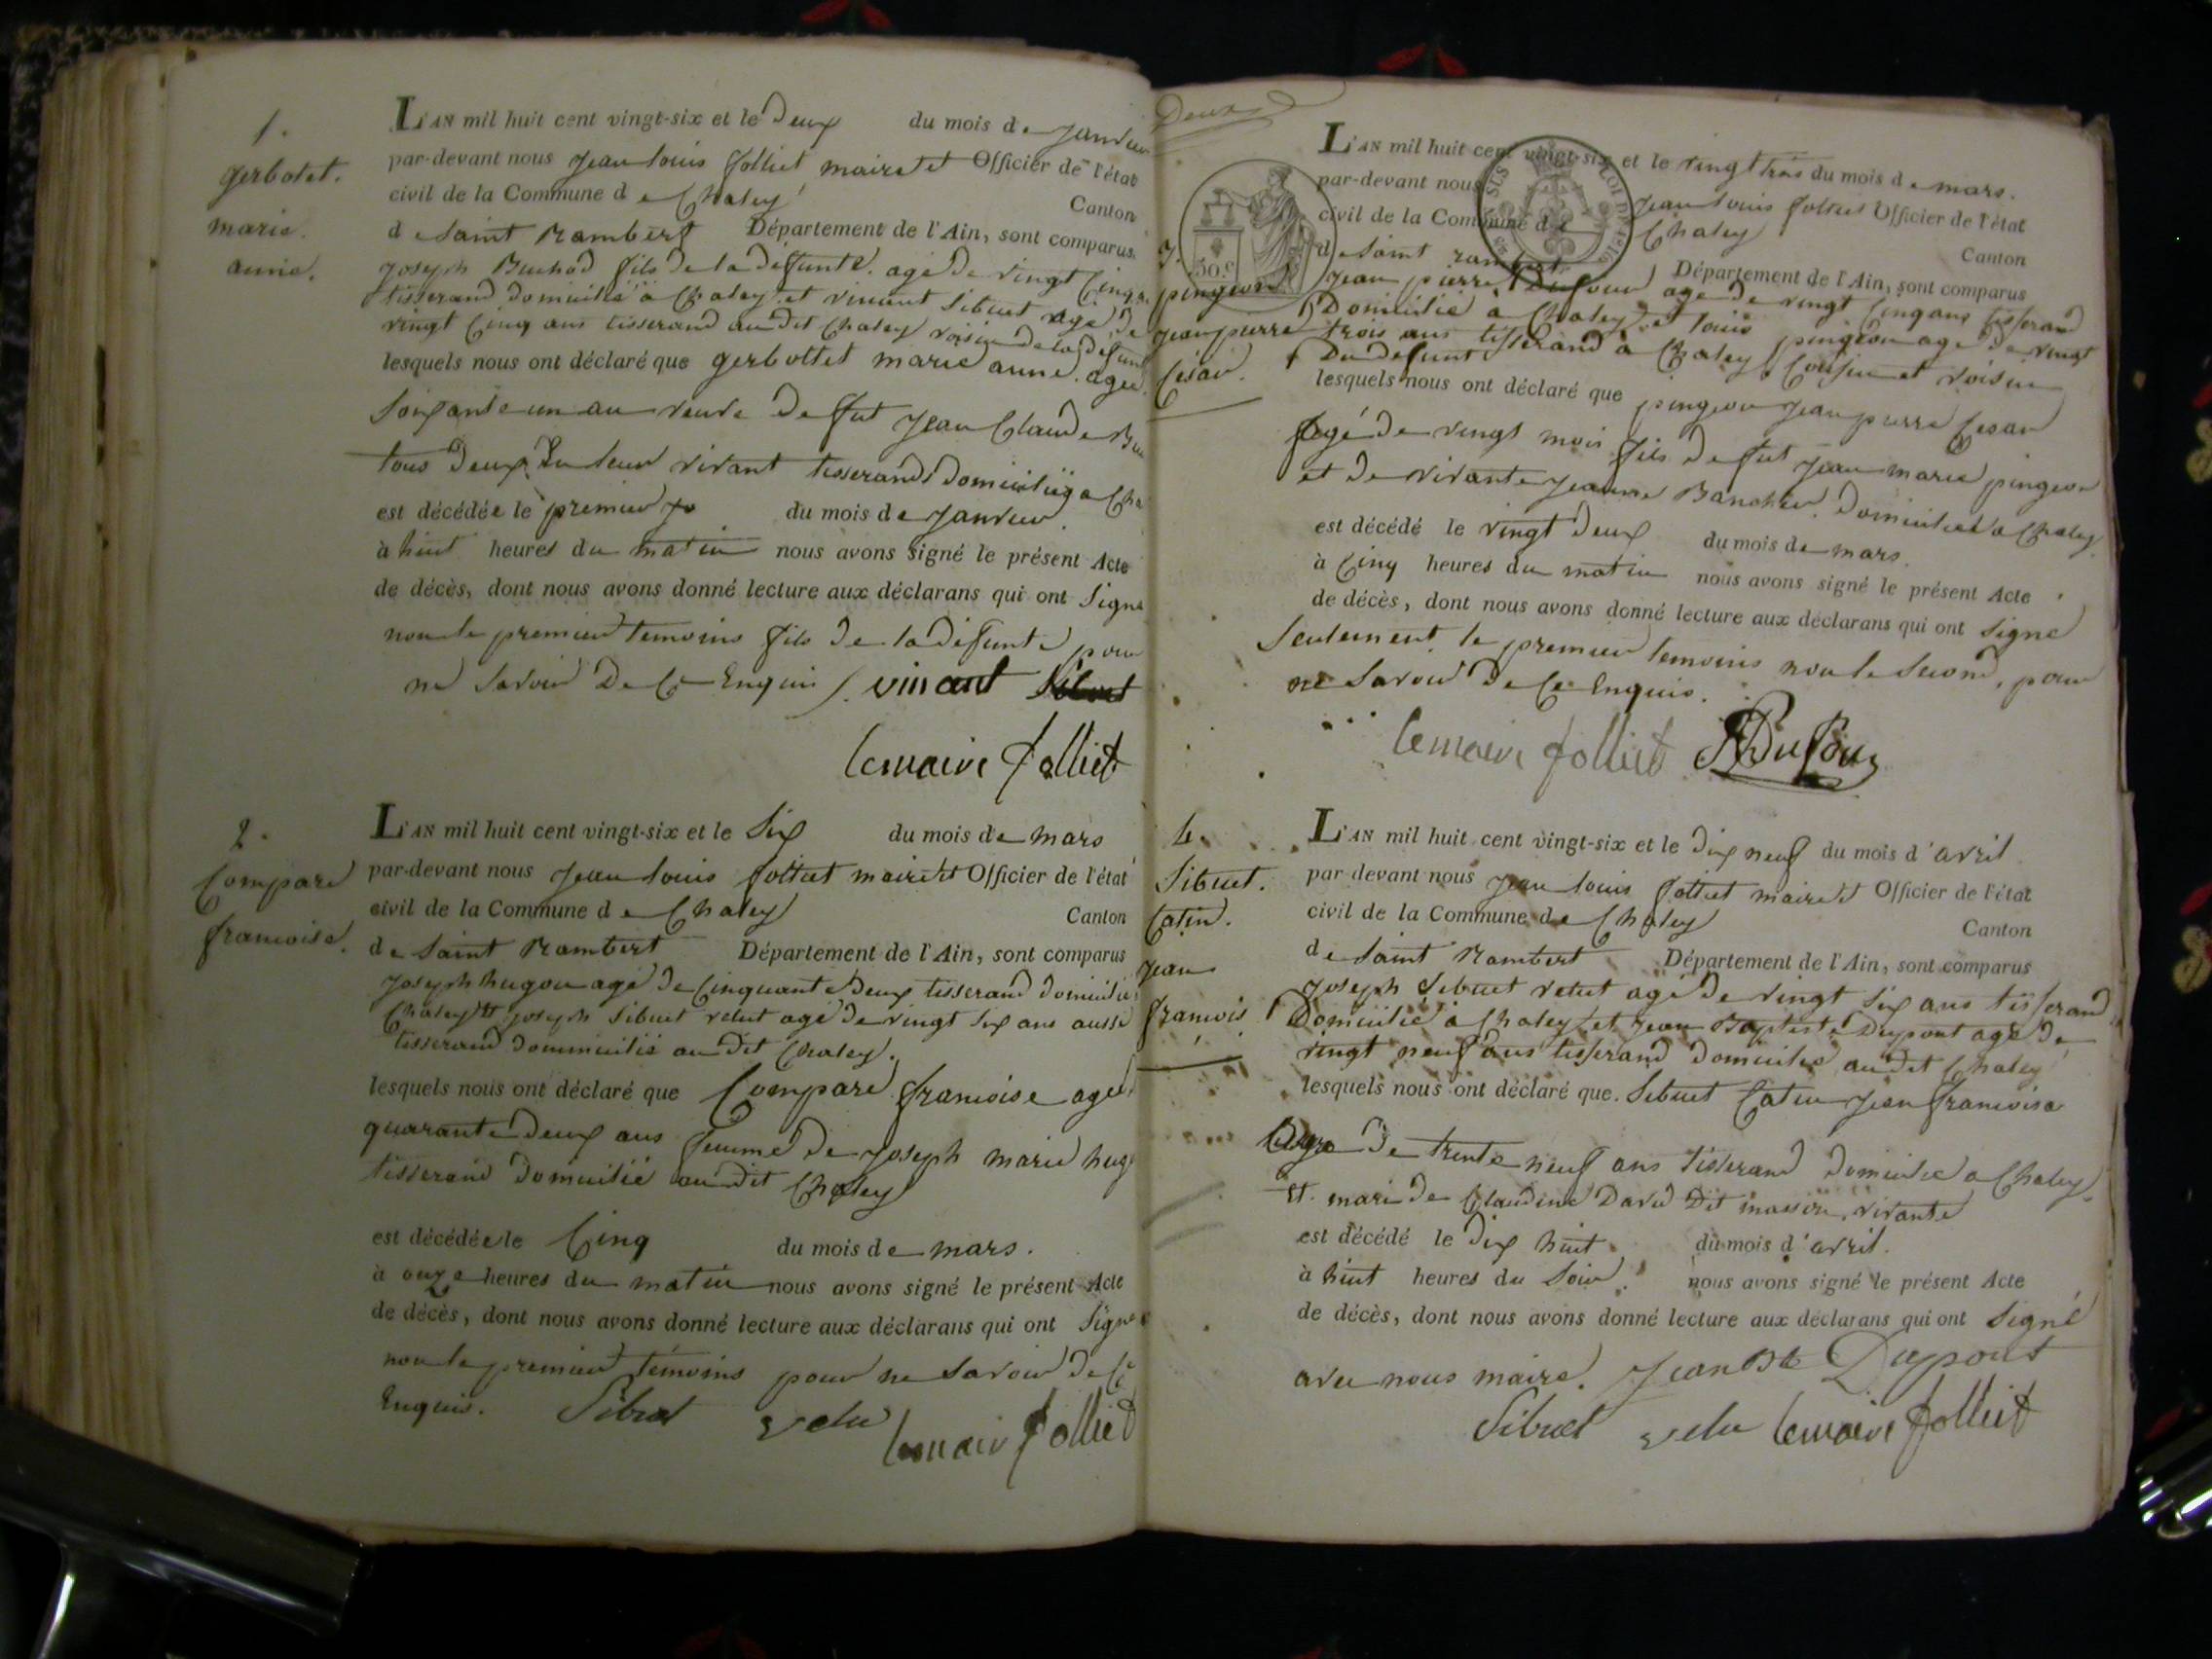 1.
gerbotet.
marie.
anne.
L'AN mil huit cent vingt-six et le deux du mois de janvier
par-devant nous jean louis folliet maire et Officier de l'état
civil de la Commune de Chaley Canton
de saint Rambert Département de l'Ain, sont comparus
joseph Buchod fils de la défunte. agé de vingt Cinq
tisserand domicilié a Chaley et vincent Sibuet agé de
vingt Cinq ans tisserand au dit Chaley voisin de la defunte
lesquels nous ont déclaré que gerbottet marie anne. agée
soixante un an veuve de fut jean Claude
tous deux leur vivant tisserands domiciliés a Cha
est décédée le premier du mois de janvier.
à huit heures du matin nous avons signé le présent Acte
de décès, dont nous avons donné lecture aux déclarans qui ont signé
non le premier temoins fils de la défunte pour
ne savoir De Ce Enquis /. vincent Sibuet
lemaire folliet
2.
Compare
francoise.
L'AN mil huit cent vingt-six et le six du mois de mars
par-devant nous jean louis folliet maire et Officier de l'état
civil de la Commune de Chaley Canton
de saint Rambert Département de l'Ain, sont comparus
joseph hugon agé de Cinquante deux tisserand domicilié
Chaley et joseph Sibuet velut agé de vingt six ans aussi
tisserand dommicilié au dit Chaley.
lesquels nous ont déclaré que Compare francoise agée
quarante deux ans femme de joseph marie hug
tisserand domicilié au dit Chaley
est décédée le Cinq du mois de mars.
à onze heures du matin nous avons signé le présent Acte
de décès, dont nous avons donné lecture aux déclarans qui ont signé
non le premier témoins pour ne savoir de Ce
Enquis. Sibuet velu lemaire folliet
Deux
3.
pingeon
jean pierre
Césard.
50.c
L'AN mil huit cent vingt-six et le vingt trois du mois de mars.
par-devant nous jean louis folliet Officier de l'état
civil de la Commune de Chaley Canton
de saint rambert Département de l'Ain, sont comparus
jean pierre Dufour agé de vingt Cinq ans tisserand
Domicilié a Chaley et louis pingeon agé de vingt
trois ans tisserand a Chaley Cousin et voisin
Du defunt
lesquels nous ont déclaré que pingeon jean pierre Cesar
Agé de vingt mois fils de fut jean marie pingeon
et de vivante jeanne Domiciliée a Chaley
est décédé le vingt deux du mois de mars.
à Cinq heures du matin nous avons signé le présent Acte
de décès, dont nous avons donné lecture aux déclarans qui ont signé
seulement le premier temoins non le second, pour
ne savoir de Ce Enquis.
lemaire folliet Dufour
4.
Sibuet.
Catin.
jean
francois
L'AN mil huit cent vingt-six et le dix neuf du mois d'avril
par-devant nous jean louis folliet maire et Officier de l'état
civil de la Commune de Chaley Canton
de saint Rambert Département de l'Ain, sont comparus
joseph Sibuet velut agé de vingt six ans tisserand
Domicilié a Chaley et jean Baptiste Dupont agé de
vingt neuf ans tisserand domicilié au dit Chaley
lesquels nous ont déclaré que. Sibuet Catin jean francois
Age de trente neuf ans tisserand domicilié a Chaley.
et. mari de Claudine David Dit masson, vivante
est décédé le dix huit du mois d'avril.
à huit heures du soir. nous avons signé le présent Acte
de décès, dont nous avons donné lecture aux déclarans qui ont signé
avec nous maire. jean Bte Dupont
Sibuet velu lemaire folliet